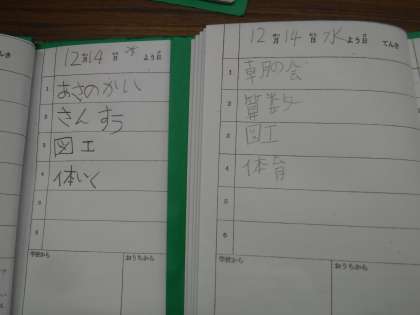 12月14日 水ようび
1 あさのかい
2 さんすう
3 図工
4 体いく
5
6
学校から おうちから
12月14日 水ようび てんき
1 朝の会
2 算数
3 図工
4 体育
5
6
学校から おうちから